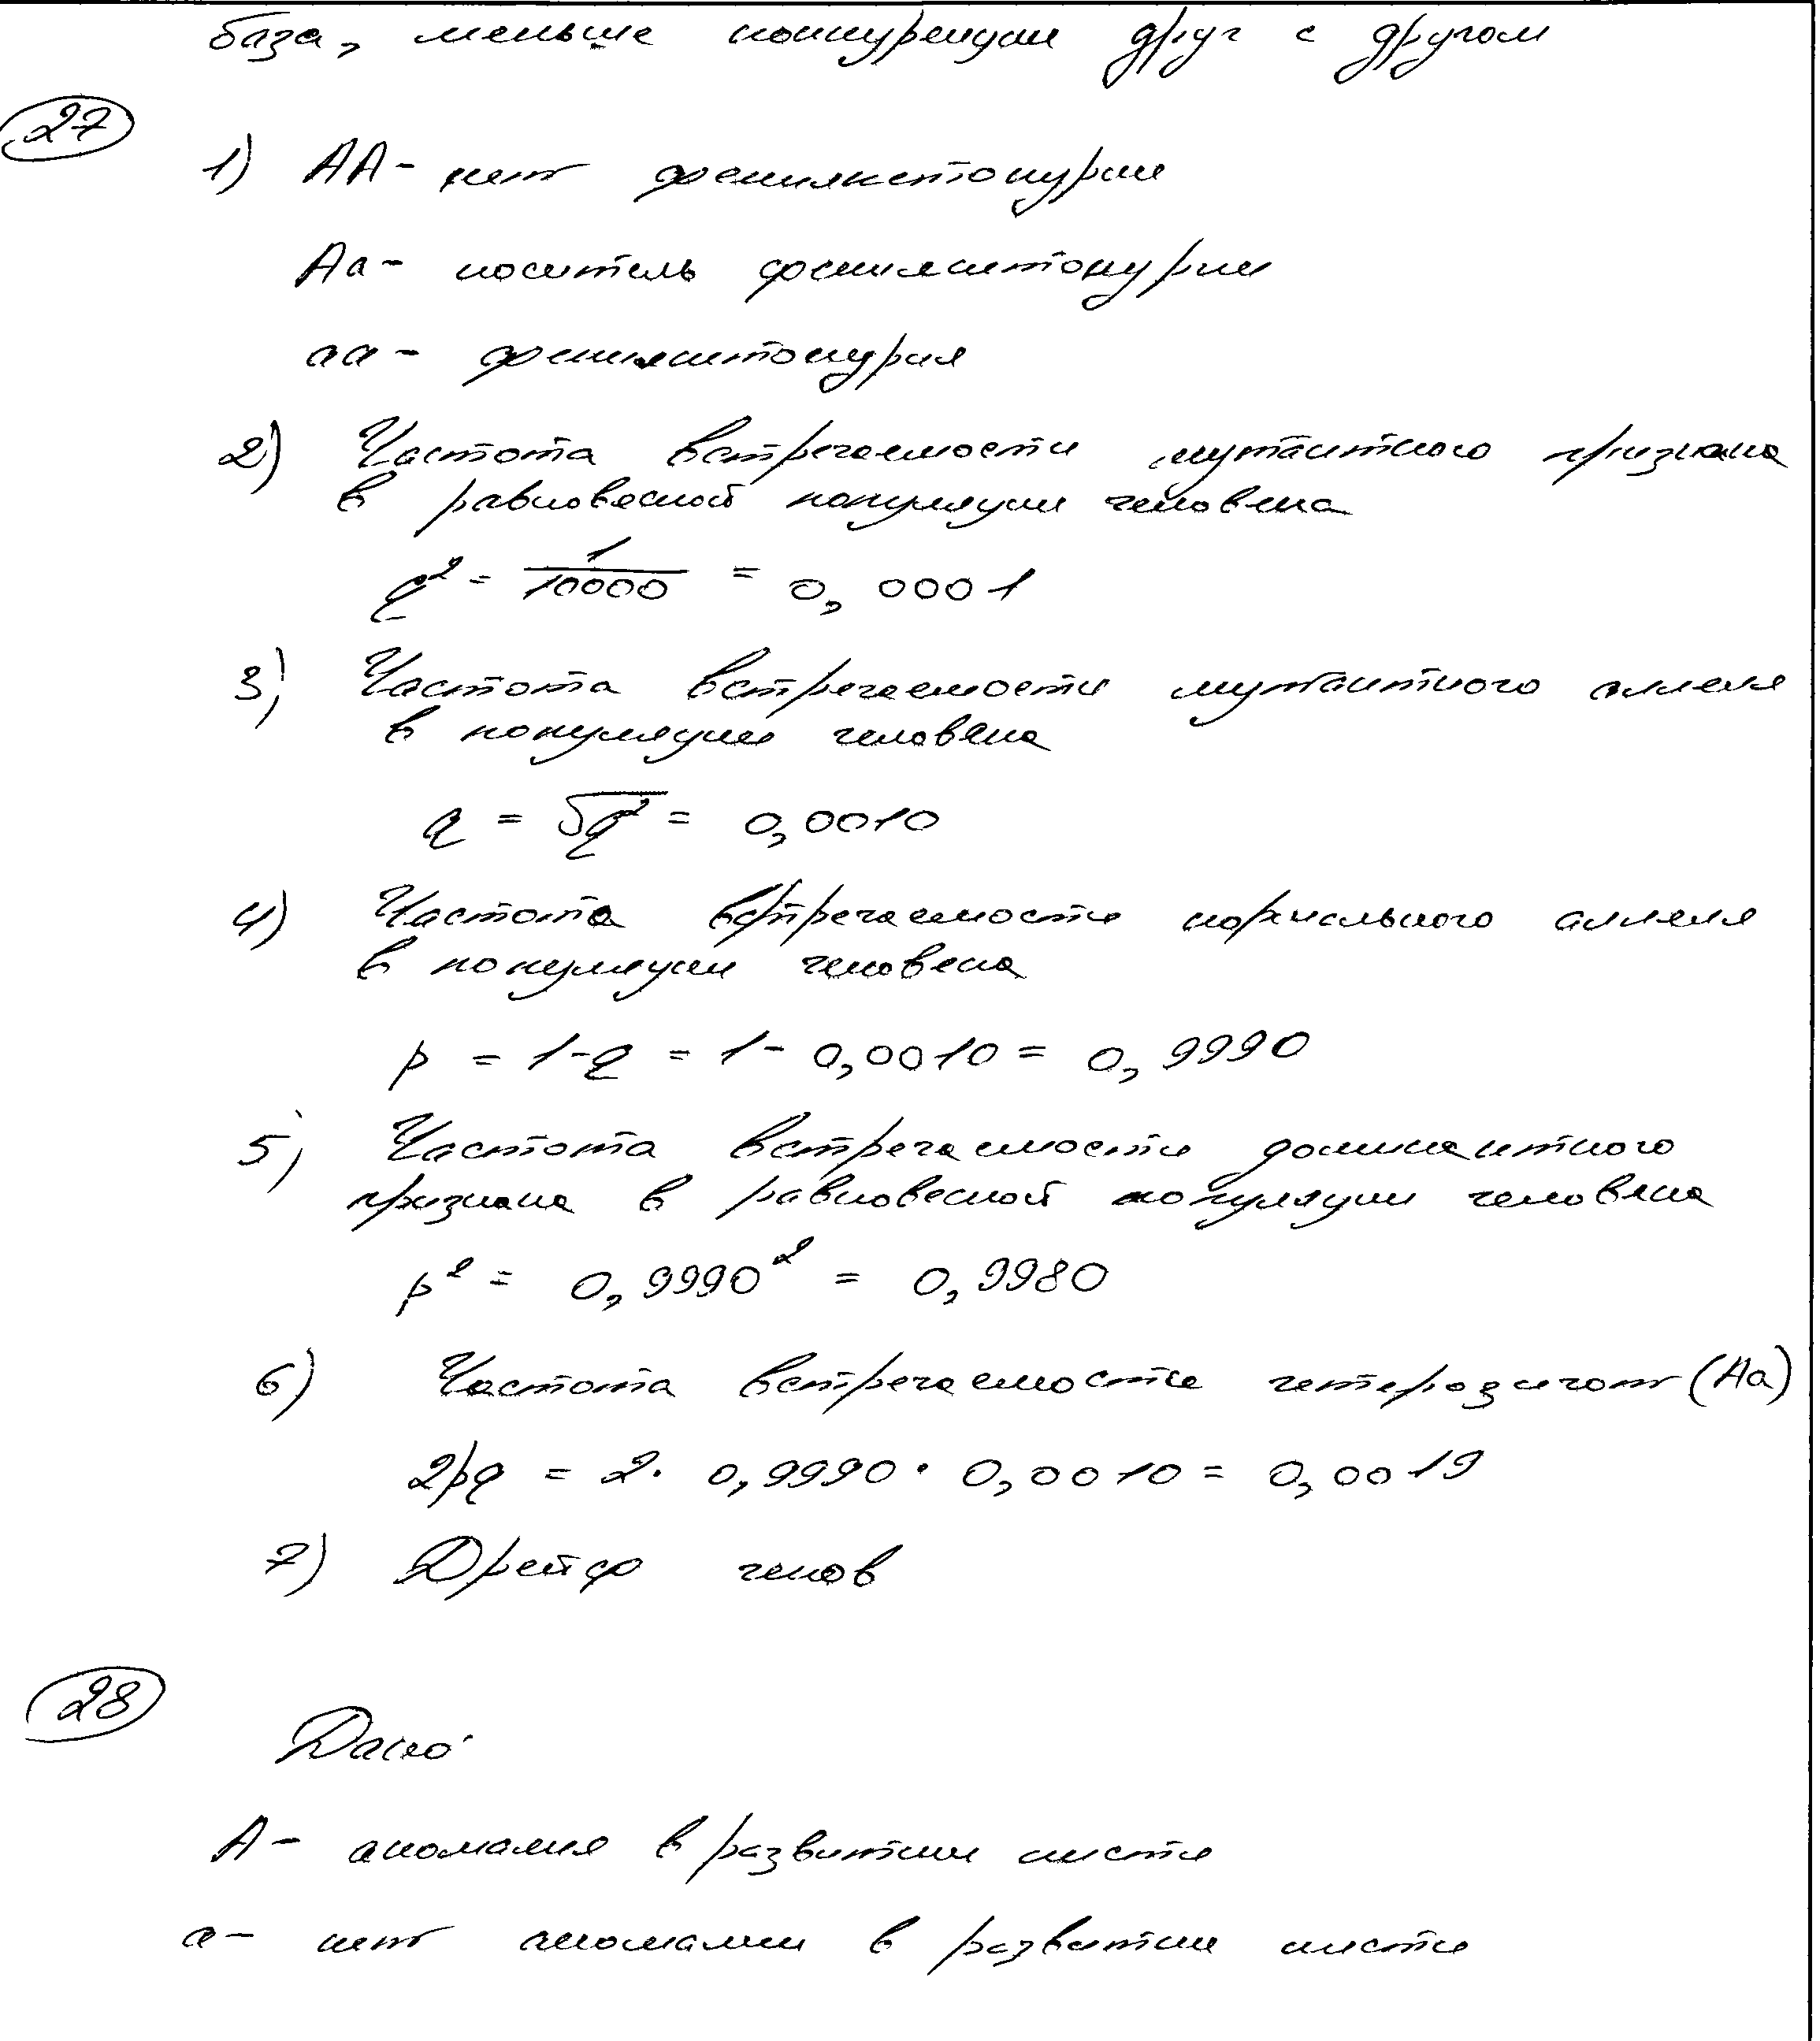 база, меньше конкуренции друг с другом
27
1) АА - нет фенилкетонурии
Аа - носитель фенилкетонурии
аа - фенилкетонурия
2) Частота встречаемости мутантного признака
в равновесной популяции человека
q² = 1/10000 = 0,0001
3) Частота встречаемости мутантного аллеля
в популяции человека
q = √q² = 0,0010
4) Частота встречаемости нормального аллеля
в популяции человека
p = 1-q = 1 - 0,0010 = 0,9990
5) Частота встречаемости доминантного
признака в равновесной популяции человека
p² = 0,9990² = 0,9980
6) Частота встречаемости гетерозигот (Аа)
2pq = 2· 0,9990 · 0,0010 = 0,0019
7) Дрейф генов
28
Дано:
А - аномалия в развитии кисти
а - нет аномалии в развитии кисти